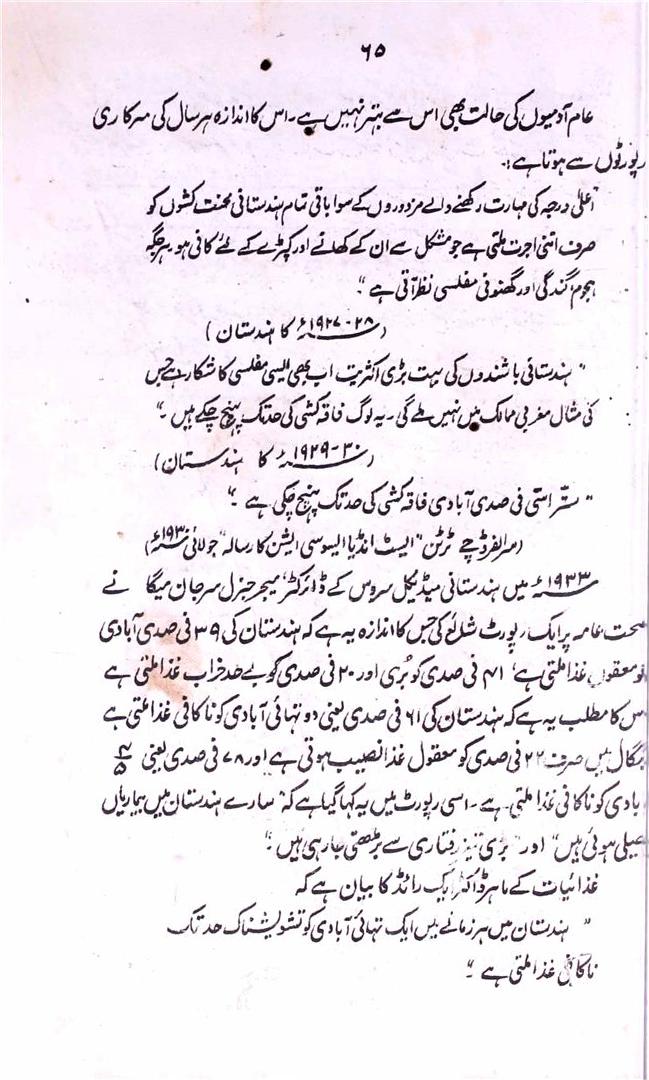 ۶۵
عام آدمیوں کی حالت بھی اس سے بہتر نہیں ہے۔ اس کا اندازہ ہر سال کی سرکاری
رپورٹوں سے ہوتا ہے:۔
"اعلیٰ درجہ کی مہارت رکھنے والے مزدوروں کے سوا باقی تمام ہندستانی محنت کشوں کو
صرف اتنی اجرت ملتی ہے جو مشکل سے ان کے کھانے اور کپڑے کے لئے کافی ہو۔ ہر جگہ
ہجوم، گندگی اور گھنونی مفلسی نظر آتی ہے"۔
(۲۸-۱۹۲۷ء کا ہندستان)
"ہندستانی باشندوں کی بہت بڑی اکثریت اب بھی ایسی مفلسی کا شکار ہے جس
کی مثال مغربی ممالک میں نہیں ملے گی۔ یہ لوگ فاقہ کشی کی حد تک پہنچ چکے ہیں۔"
(۳۰-۱۹۲۹ء کا ہندستان)
"ستّر اسی فی صدی آبادی فاقہ کشی کی حد تک پہنچ چکی ہے۔"
(سر الفرڈ چے ٹرٹن "ایسٹ انڈیا ایسوسی ایشن کا رسالہ" جولائی ۱۹۳۰ء)
۱۹۳۳ء میں ہندستانی میڈیکل سروس کے ڈائرکٹر، میجر جنرل سر جان میگا نے
صحت عامہ پر ایک رپورٹ شائع کی جس کا اندازہ یہ ہے کہ ہندستان کی ۳۹ فی صدی آبادی
کو معقول غذا ملتی ہے، ۴۱ فی صدی کو بُری اور ۲۰ فی صدی کو بے حد خراب غذا ملتی ہے
اس کا مطلب یہ ہے کہ ہندستان کی ۶۱ فی صدی یعنی دو تہائی آبادی کو ناکافی غذا ملتی ہے
بنگال میں صرف ۲۲ فی صدی کو معقول غذا نصیب ہوتی ہے اور ۷۸ فی صدی یعنی ۴/۵
آبادی کو ناکافی غذا ملتی ہے۔ اسی رپورٹ میں یہ کہا گیا ہے کہ "سارے ہندستان میں بیماریاں
پھیلی ہوئی ہیں" اور "بڑی تیز رفتاری سے بڑھتی جا رہی ہیں:"
غذائیات کے ماہر ڈاکٹر ایک رائڈ کا بیان ہے کہ
"ہندستان میں ہر زمانے میں ایک تہائی آبادی کو تشویشناک حد تک
ناکافی غذا ملتی ہے۔"